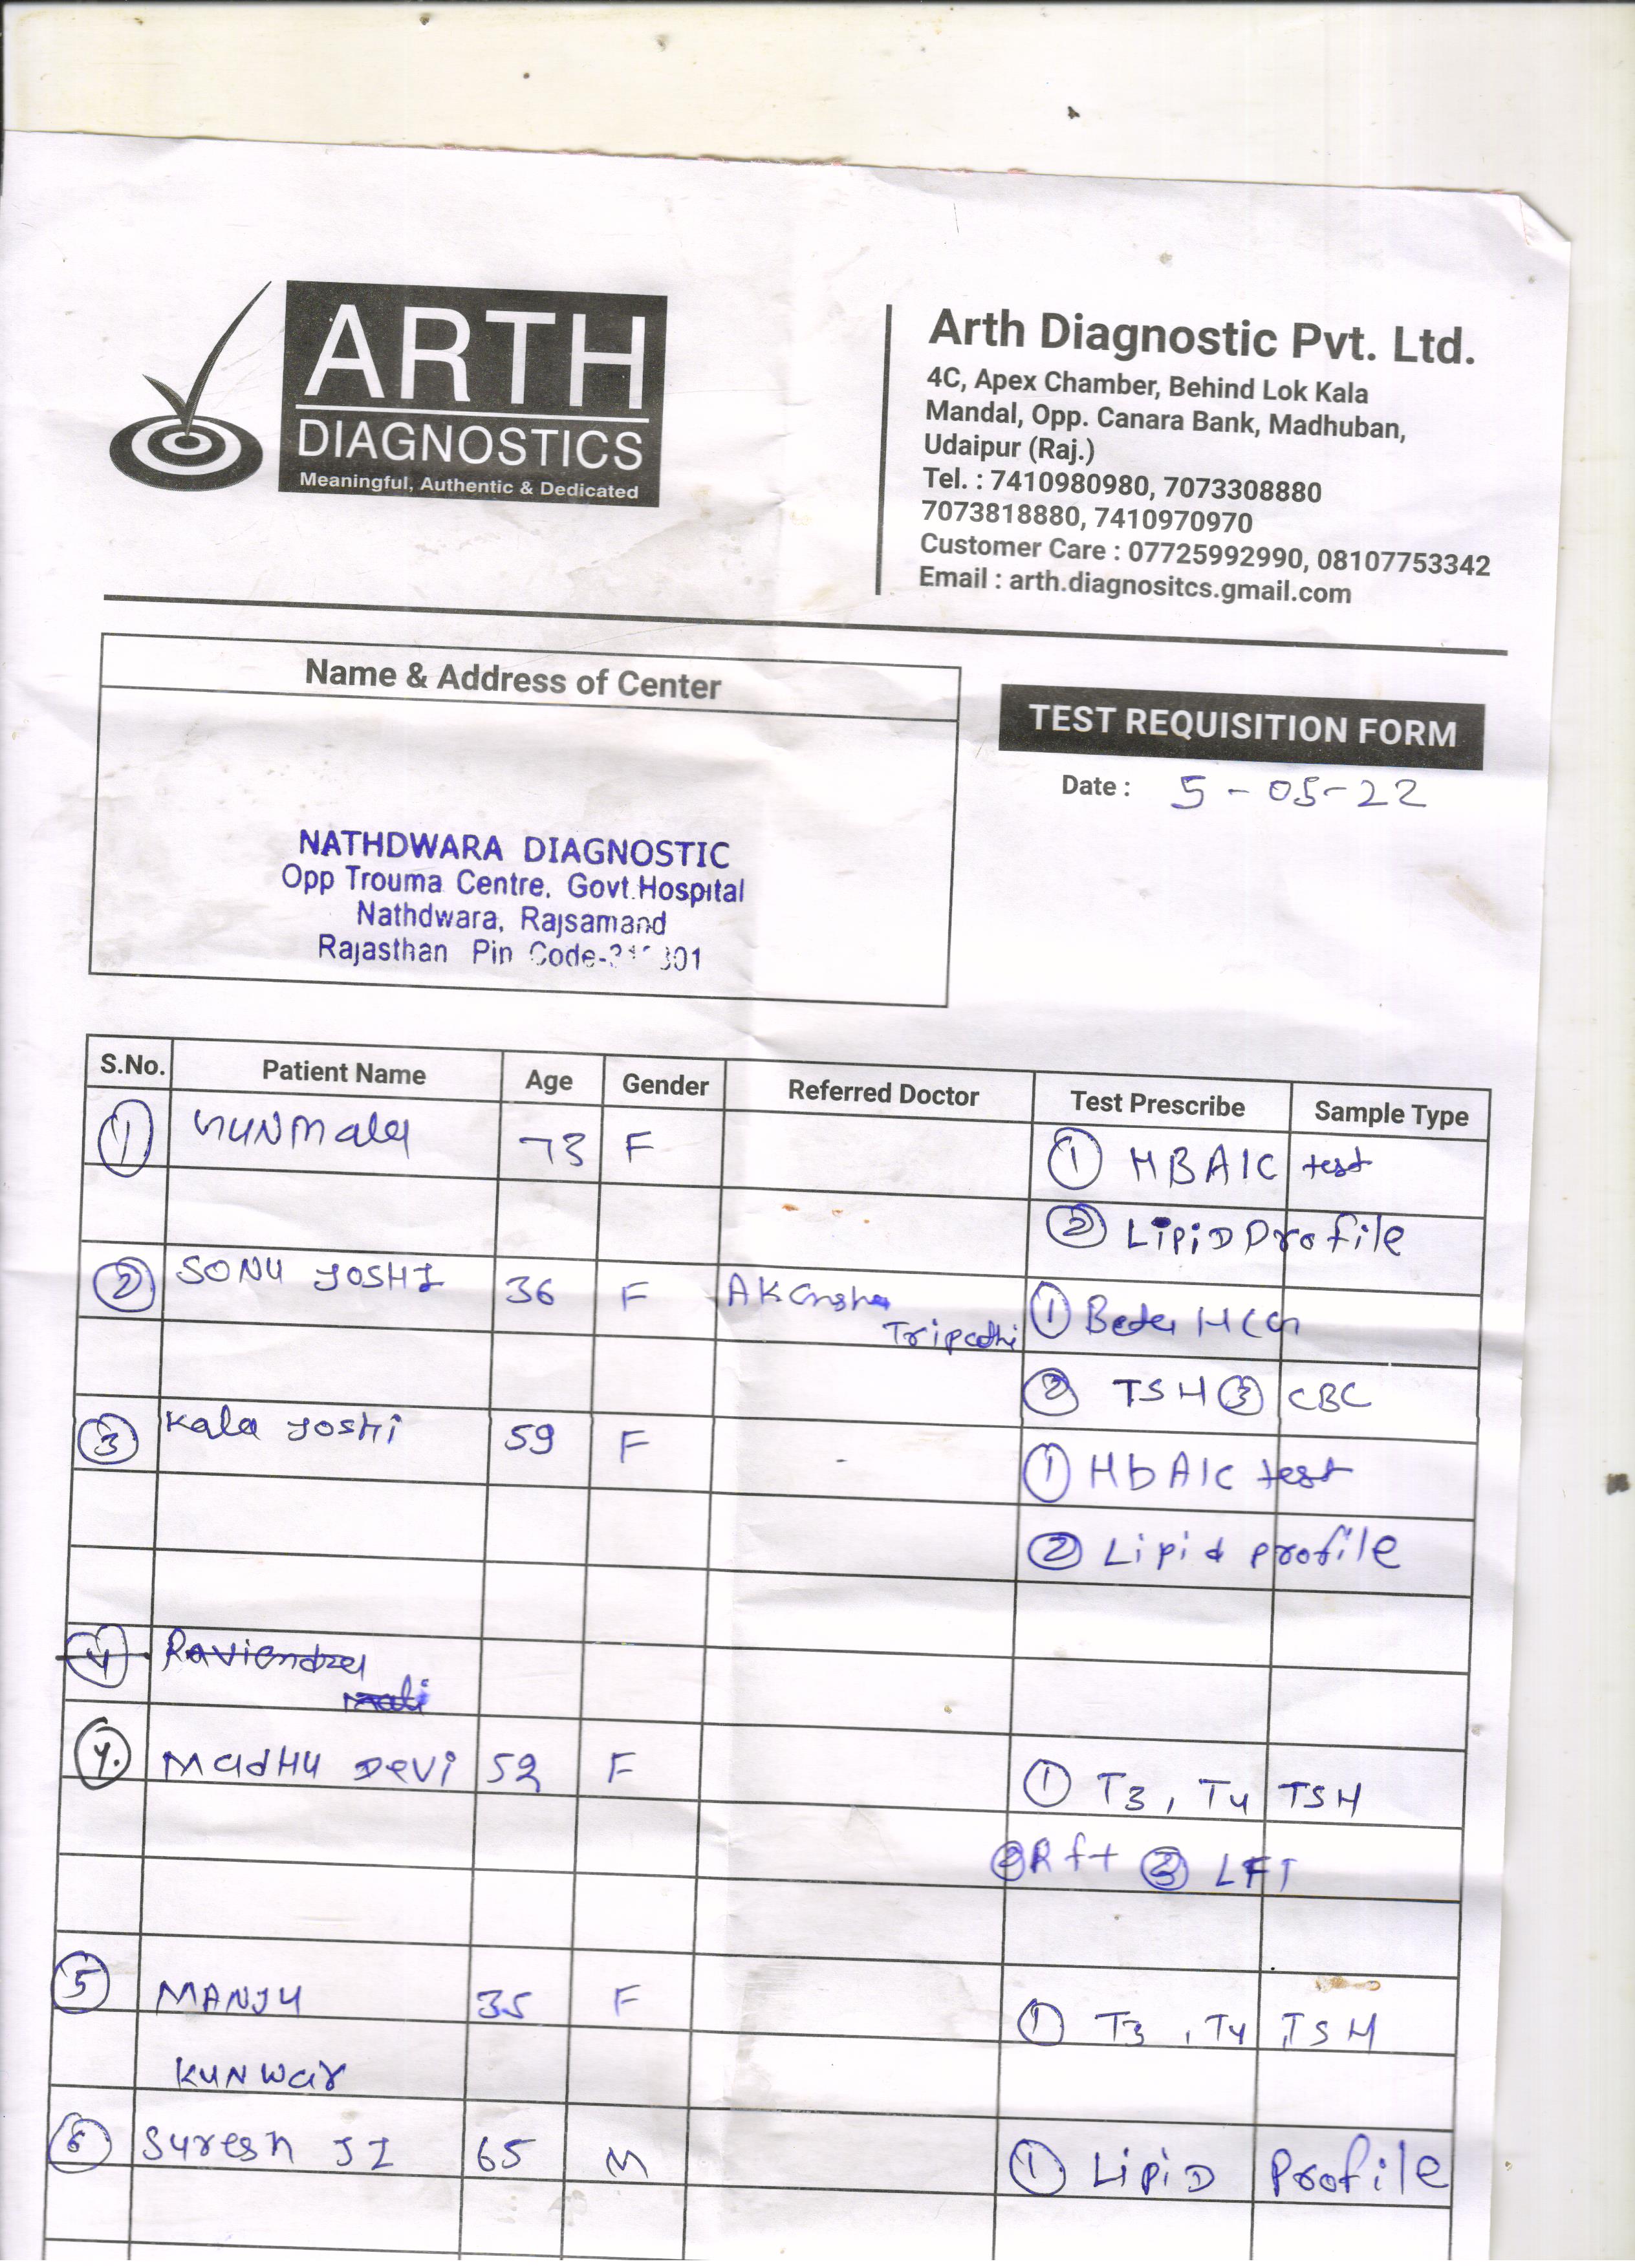 ARTH
DIAGNOSTICS
Meaningful, Authentic & Dedicated
Arth Diagnostic Pvt. Ltd.
4C, Apex Chamber, Behind Lok Kala
Mandal, Opp. Canara Bank, Madhuban,
Udaipur (Raj.)
Tel. : 7410980980, 7073308880
7073818880, 7410970970
Customer Care : 07725992990, 08107753342
Email : arth.diagnositcs.gmail.com
Name & Address of Center
TEST REQUISITION FORM
Date : 5-05-22
NATHDWARA DIAGNOSTIC
Opp Trouma Centre, Govt.Hospital
Nathdwara, Rajsamand
Rajasthan Pin Code-
S.No. Patient Name Age Gender Referred Doctor Test Prescribe Sample Type
1 73 F 1 HBA1C test
2 LipiD Profile
2 SONU JOSHI 36 F AKansha Tripathi 1 Beta HCG
2 TSH 3 CBC
3 Kala Joshi 59 F 1 HbA1C test
2 Lipid profile
4 Raviendra
mali
4. Madhu Devi 52 F 1 T3, T4 TSH
2 Rft 3 LFT
5 MANJU 35 F 1 T3, T4 TSH
KUNWar
6 Suresh JI 65 M 1 LipiD Profile